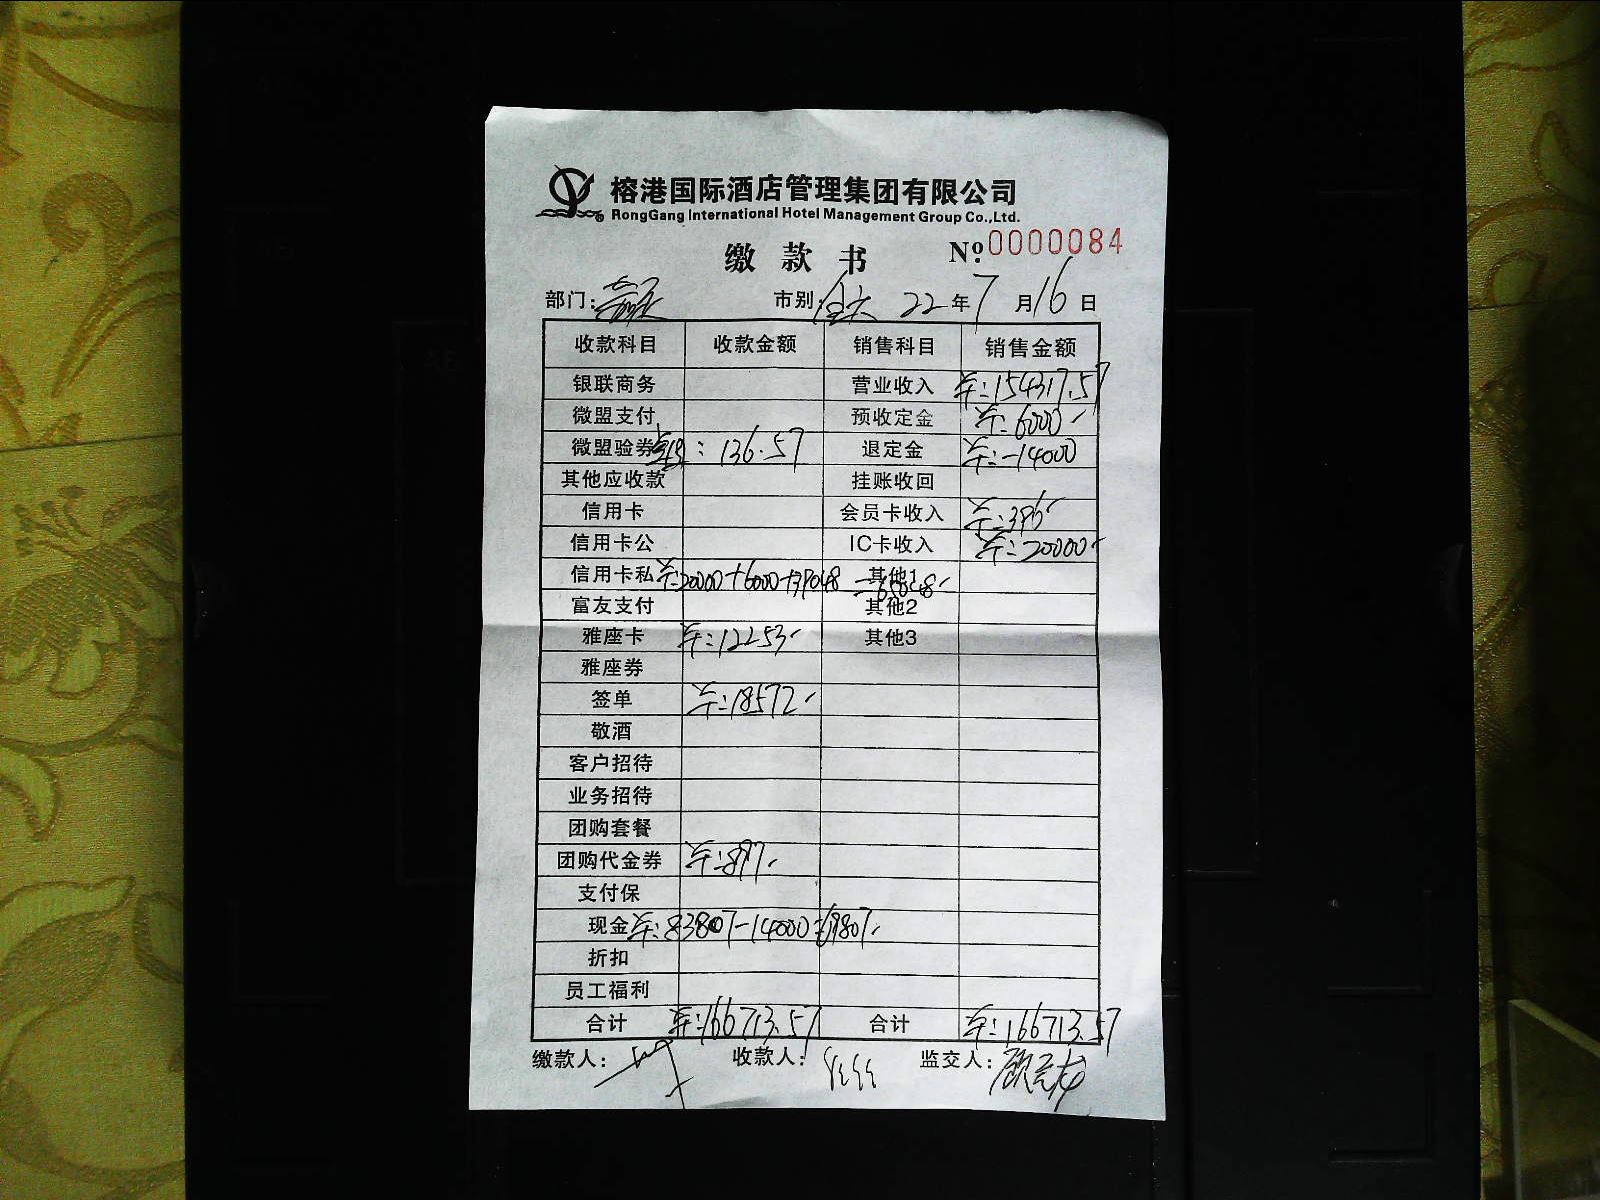 榕港国际酒店管理集团有限公司
RongGang International Hotel Management Group Co.,Ltd.
缴款书 Nº:0000084
部门: 市别:全天 22年7月16日
收款科目 收款金额 销售科目 销售金额
银联商务 营业收入 卡:154317.57
微盟支付 预收定金 卡:6000
微盟验券 : 136.57 退定金 卡:-14000
其他应收款 挂账收回
信用卡 会员卡收入 卡:396
信用卡公 IC卡收入 卡:20000
信用卡私 卡:20000+6000+39048=65048 其他1
富友支付 其他2
雅座卡 卡:12253 其他3
雅座券
签单 卡:18572
敬酒
客户招待
业务招待
团购套餐
团购代金券 卡:897
支付保
现金 卡:83807-14000=69807
折扣
员工福利
合计 卡:166713.57 合计 卡:166713.57
缴款人: 收款人: 监交人: